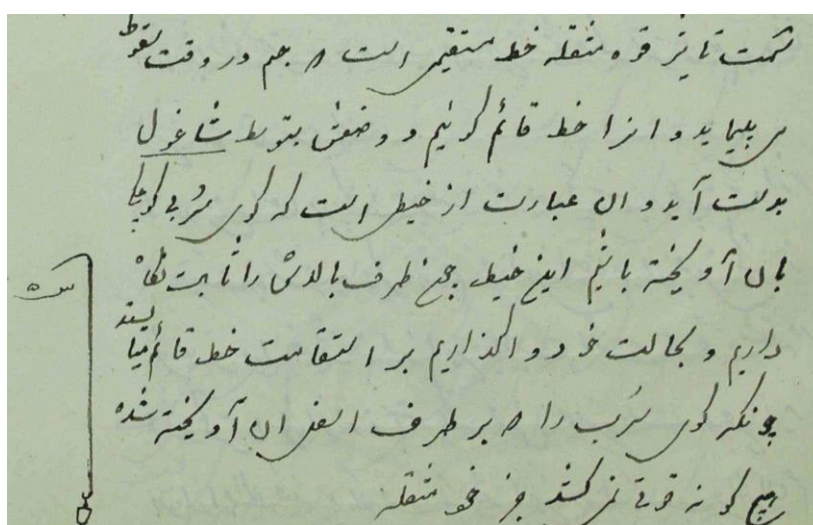 سمت تاثیر قوه مثقله خط مستقیمی است که جسم در وقت سقوط
می پیماید و انرا خط قائم گوئیم و وضعش بتوسط شاغول
بدست آید و ان عبارت از خیطی است که گوی سربی کوچکی
بان آویخته باشیم این خیط چون طرف بالایش را ثابت نگاه
داریم و بحالت خود واگذاریم بر استقامت خط قائم میایستد
چونکه گوی سرب را که بر طرف اسفل ان آویخته شده
هیچ گونه قوتی نمی کشد جز قوه مثقله